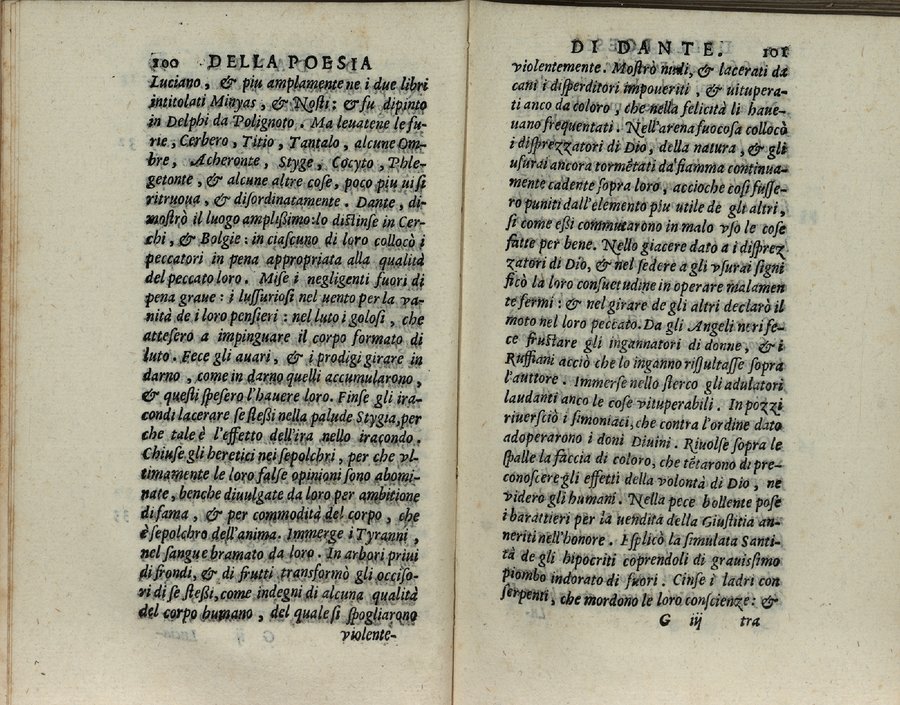 100 DELLA POESIA
Luciano, & piu amplamente ne i due libri
intitolati Minyas, & Nosti: & fu dipinto
in Delphi da Polignoto. Ma leuatene le fu-
rie, Cerbero, Titio, Tantalo, alcune Om-
bre, Acheronte, Styge, Cocyto, Phle-
getonte, & alcune altre cose, poco piu ui si
ritruoua, & disordinatamente. Dante, di-
mostrò il luogo amplißimo: lo distinse in Cer-
chi, & Bolgie: in ciascuno di loro collocò i
peccatori in pena appropriata alla qualità
del peccato loro. Mise i negligenti fuori di
pena graue: i lussuriosi nel uento per la va-
nità de i loro pensieri: nel luto i golosi, che
attesero a impinguare il corpo formato di
luto. Fece gli auari, & i prodigi girare in
darno, come in darno quelli accumularono,
& questi spesero l'hauere loro. Finse gli ira-
condi lacerare se steßi nella palude Stygia, per
che tale è l'effetto dell'ira nello iracondo.
Chiuse gli heretici nei sepolchri, per che vl-
timamente le loro false opinioni sono abomi-
nate, benche diuulgate da loro per ambitione
di fama, & per commodità del corpo, che
è sepolchro dell'anima. Immerge i Tyranni,
nel sangue bramato da loro. In arbori priui
di frondi, & di frutti transformò gli occiso-
ri di se steßi, come indegni di alcuna qualità
del corpo humano, del quale si spogliarono
violente-
DI DANTE. 101
violentemente. Mostrò nudi, & lacerati da
cani i disperditori impoueriti, & uitupera-
ti anco da coloro, che nella felicità li haue-
uano frequentati. Nell'arena fuocosa collocò
i disprezzatori di Dio, della natura, & gli
usurai ancora tormētati da fiamma continua-
mente cadente sopra loro, accioche così fusse-
ro puniti dall'elemento piu utile de gli altri,
si come eßi commutarono in malo vsò le cose
fatte per bene. Nello giacere dato a i disprez
zatori di Dio, & nel sedere a gli vsurai signi
ficò la loro consuetudine in operare malamen
te fermi: & nel girare de gli altri declarò il
moto nel loro peccato. Da gli Angeli neri fe-
ce frustare gli ingannatori di donne, & i
Ruffiani acciò che lo inganno rissultasse sopra
l'auttore. Immerse nello sterco gli adulatori
laudanti anco le cose vituperabili. In pozzi
riuersciò i simoniaci, che contra l'ordine dato
adoperarono i doni Diuini. Riuolse sopra le
spalle la faccia di coloro, che tētarono di pre-
conoscere gli effetti della volontà di Dio, ne
videro gli humani. Nella pece bollente pose
i barattieri per la uendita della Giustitia an-
neriti nell'honore. Esplicò la simulata Santi-
tà de gli hipocriti coprendoli di grauissimo
piombo indorato di fuori. Cinse i ladri con
serpenti, che mordono le loro conscienze: &
G iij tra